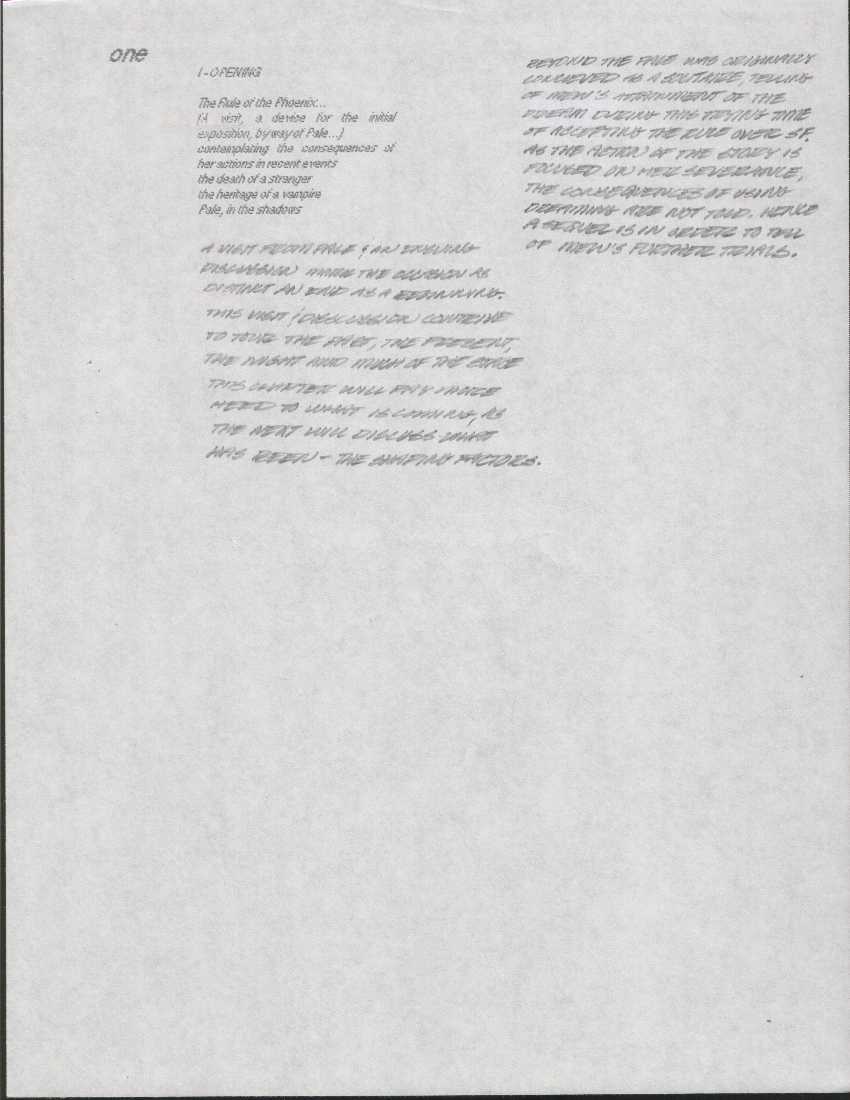 one
I - OPENING
The Rule of the Phoenix...
(A visit, a device for the initial
exposition, by way of Pale...)
contemplating the consequences of
her actions in recent events
the death of a stranger
the heritage of a vampire
Pale, in the shadows
A VISIT FROM PALE & AN ENSUING
DISCUSSION MARK THE OCCASION AS
DISTINCT AN END AS A BEGINNING.
THIS VISIT & DISCUSSION CONTRIVE
TO TOUR THE PAST, THE PRESENT,
THE NIGHT AND MUCH OF THE STAGE
THIS CHAPTER WILL PAY MORE
HEED TO WHAT IS COMING, AS
THE NEXT WILL DISCUSS WHAT
HAS BEEN - THE SHAPING FACTORS.
BEYOND THE PALE WAS ORIGINALLY
CONCIEVED AS A SOLITAIRE, TELLING
OF MEW'S ATTAINMENT OF THE
DREAM DURING THIS TRYING TIME
OF ACCEPTING THE RULE OVER SF.
AS THE ACTION OF THE STORY IS
FOCUSED ON HER SEVERANCE,
THE CONSEQUENCES OF USING
DREAMING ARE NOT TOLD. HENCE
A SEQUEL IS IN ORDER TO TELL
OF MEW'S FURTHER TRIALS.